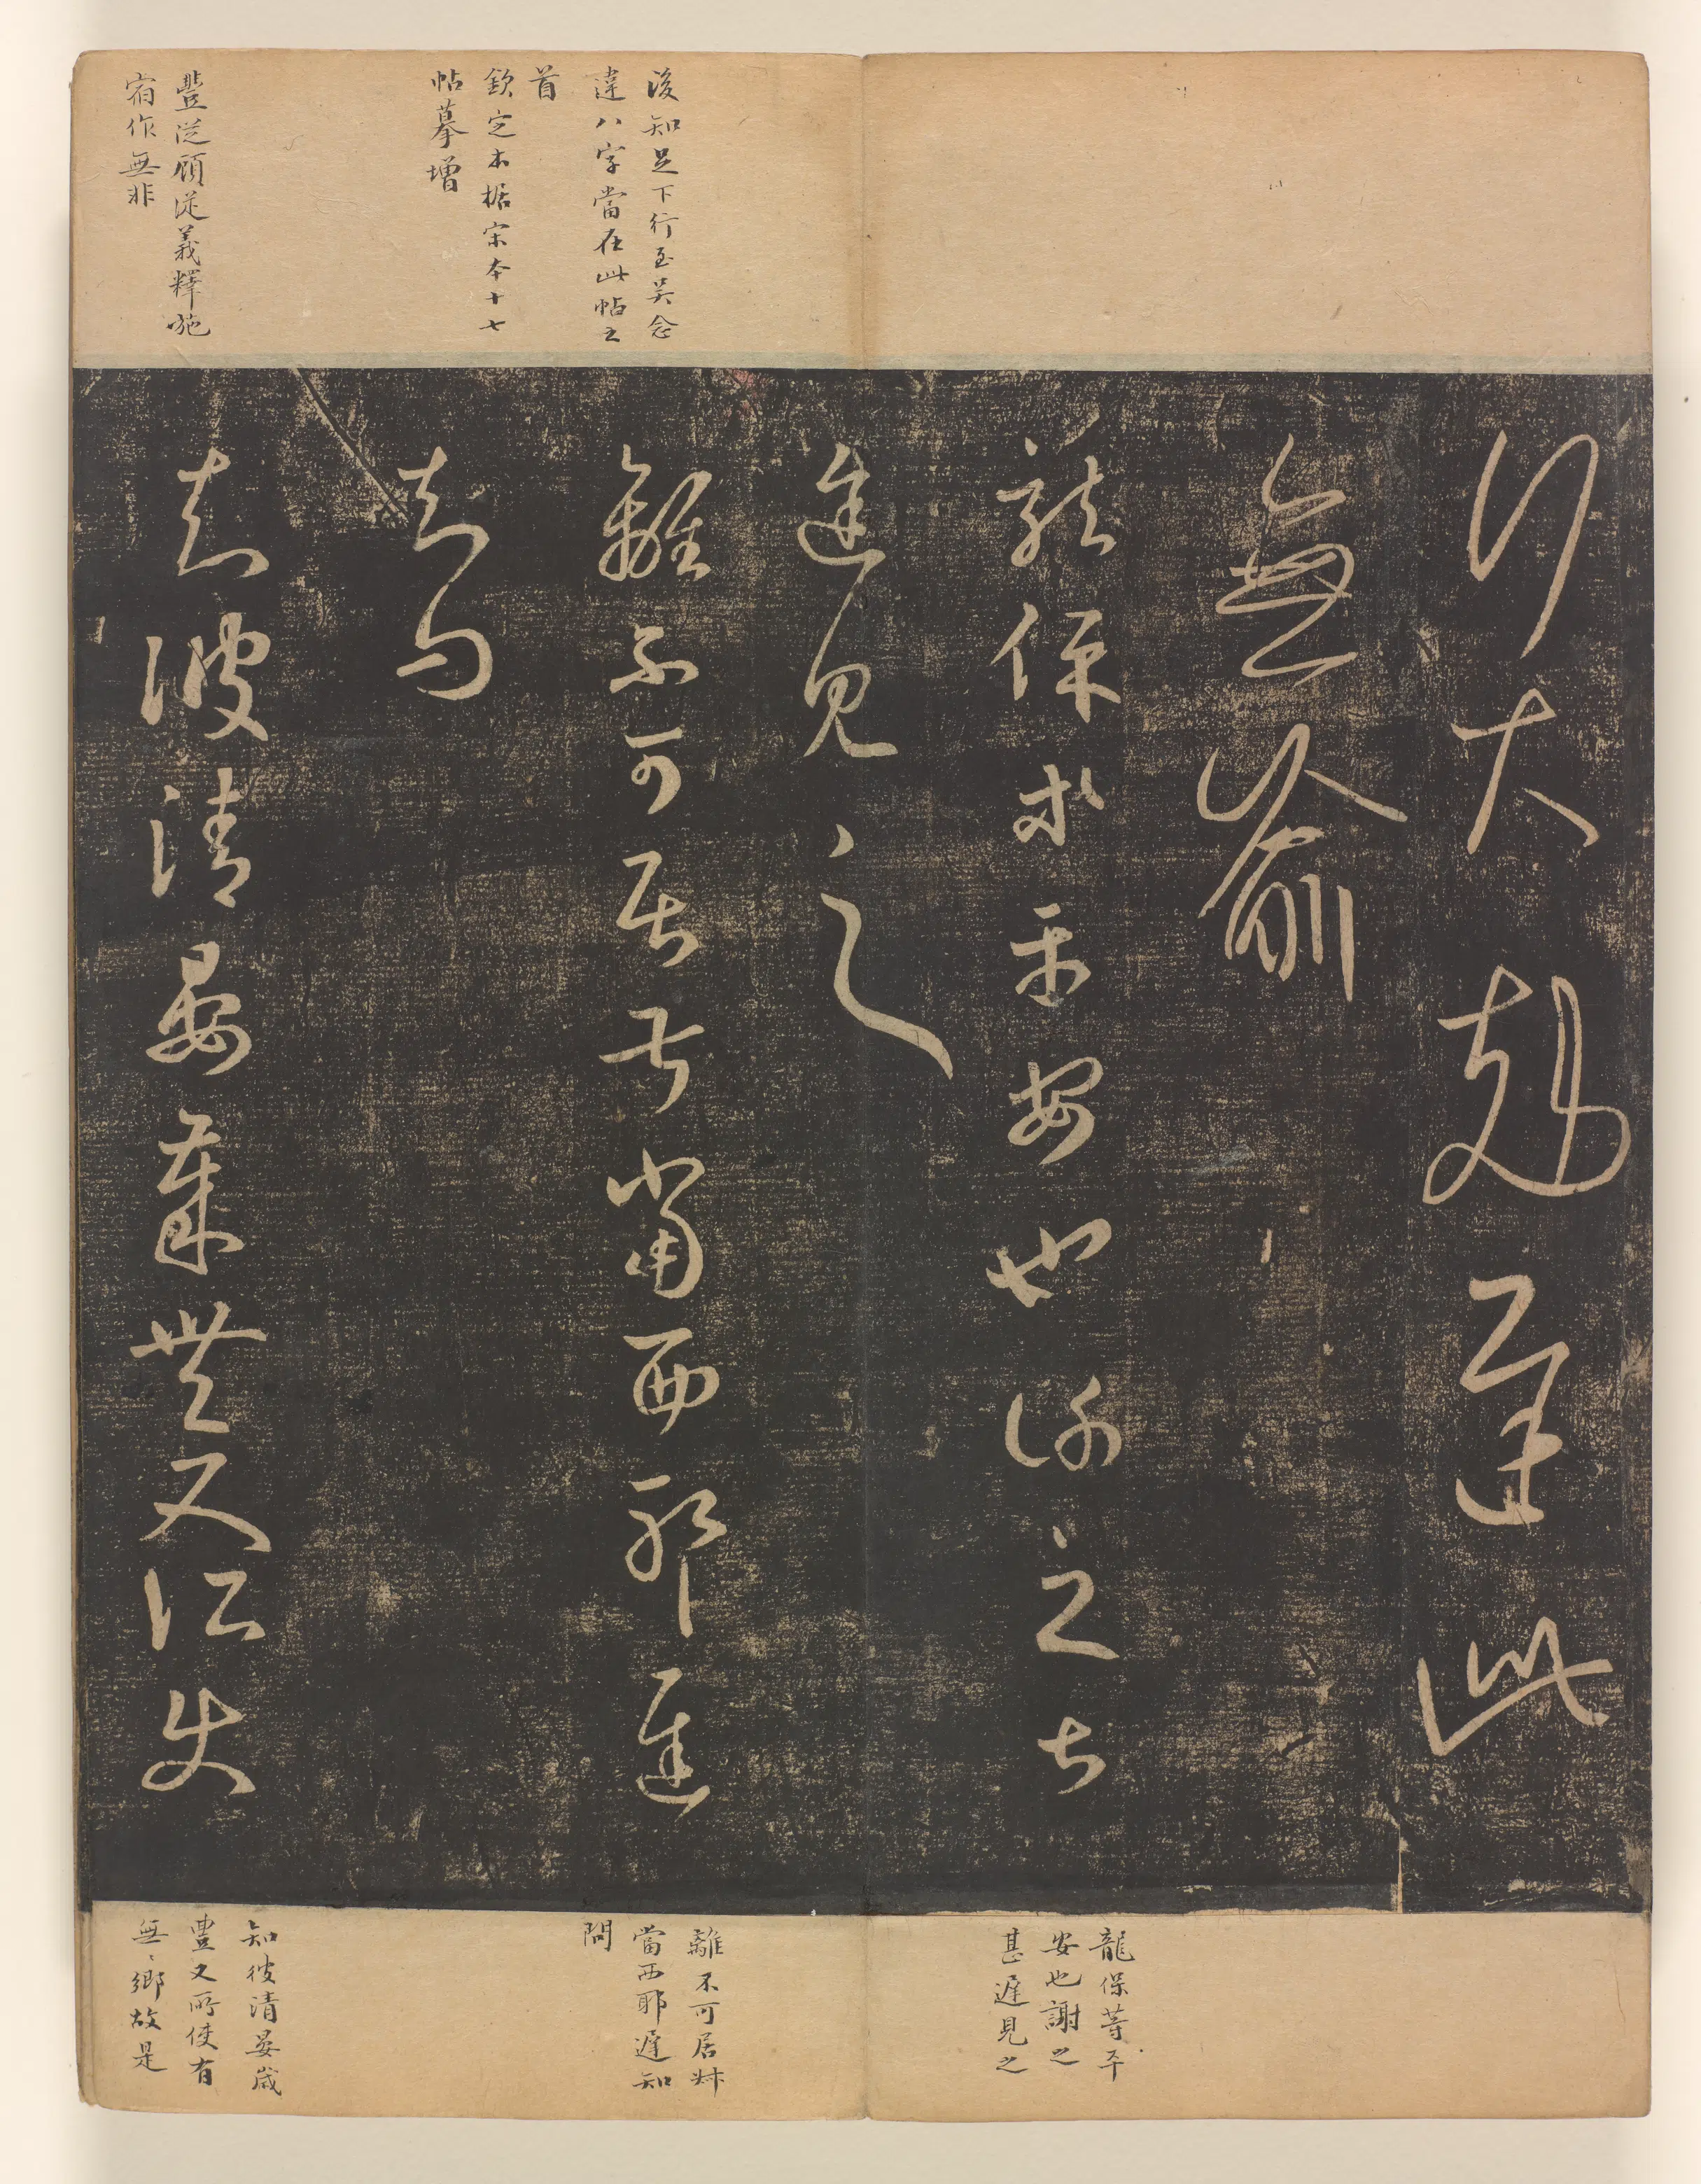 後知足下行至吳念
違八字當在此帖之
首
欽定本據宋本十七
帖摹增
豐從顧從義釋施
宿作無非
行大剋遲此
無喻
龍保等平安也謝之甚
遲見之
離不可居叔當西耶遲
知問
知彼清晏歲豐又所使
龍保等平
安也謝之
甚遲見之
離不可居叔
當西耶遲知
問
知彼清晏歲
豐又所使有
無〻鄉故是